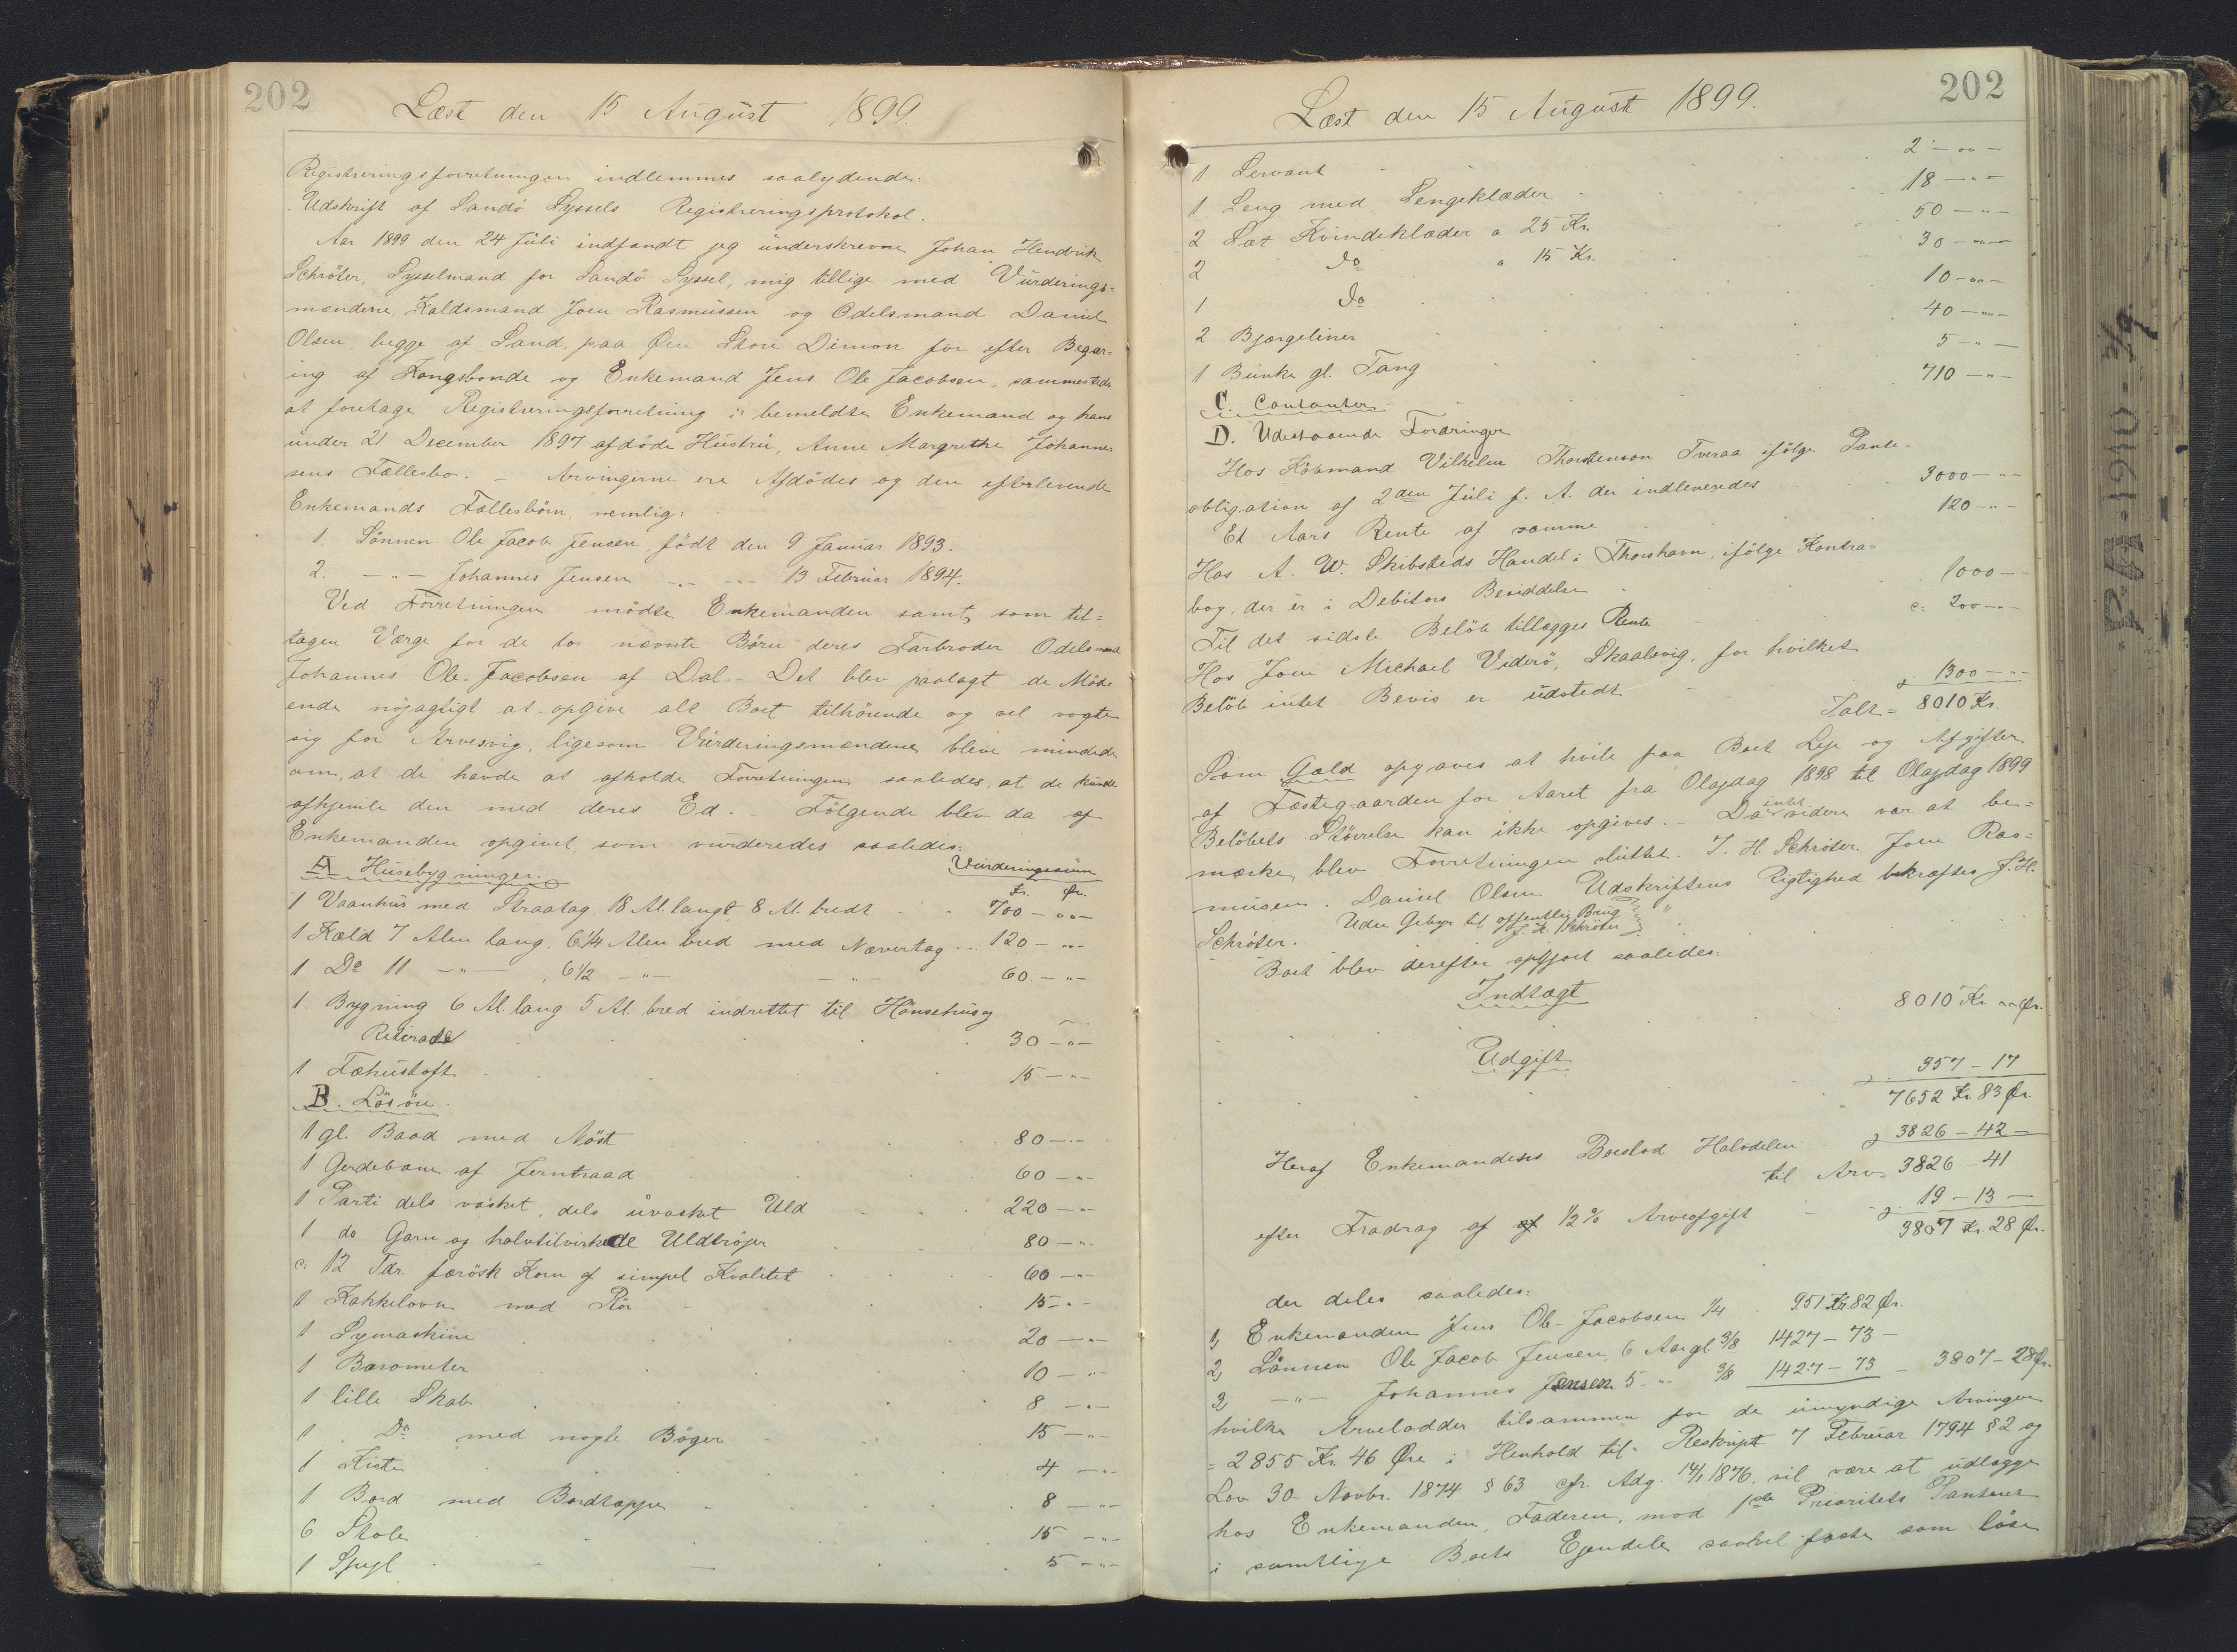 202
Læst den 15 August 1899.
Registreringsforretningen indlemmes saalydende:
Udskrift af Sandö Syssels Registreringsprotokol.
Aar 1899 den 24 Juli indfandt jeg underskrevne Johan Hendrik
Schröter, Sysselmand for Sandö Syssel, mig tillige med Vurderings=
mændene, Kaldsmand Joen Rasmussen og Odelsmand Daniel
Olsen, begge af Sand, paa Øen Store Dimon for efter Begær=
ing af Kongsbonde og Enkemand Jens Ole Jacobsen, sammesteds
at foretage Registreringsforretning i bemeldte Enkemand og hans
under 21 December 1897 afdöde Hustru, Anne Margrethe Johannes=
sens Fællesbo. - Arvingerne ere Afdödes og den efterlevende
Enkemands Fællesbörn, nemlig:
1. Sönnen Ole Jacob Jensen, födt den 9 Januar 1893.
2. -"- Johannes Jensen -"- -"- 13 Februar 1894.
Ved Forretningen mödte Enkemanden samt, som til=
tagen Værge for de to nævnte Börn deres Farbroder Odelsmand
Johannes Ole Jacobsen af Dal. - Det blev paalagt de Möd=
ende nöjagtigt at opgive alt Boet tilhörende og vel vogte
sig for Arvesvig, ligesom Vurderingsmændene bleve mindede
om, at de havde at afholde Forretningen saaledes, at de kunde
afhjemle den med deres Ed. - Fölgende blev da af
Enkemanden opgivet, som vurderedes saaledes:
A Husebygninger. Vurderingssum
Kr. Ør.
1 Vaanhus med Straatag 18 Al. langt 8 Al. bredt 700 - " -
1 Kæld 7 Alen lang, 6 1/4 Alen bred med Nævertag 120 - " -
1 Do 11 -"- , 6 1/2 -"- -"- 60 - " -
1 Bygning 6 Al. lang 5 Al. bred indrettet til Hönsehus og
Retirade 30 - " -
1 Fæhustoft 15 - " -
B. Lösöre.
1 gl. Baad med Nöst 80 - " -
1 Gerdebane af Jerntraad 60 - " -
1 Parti dels vasket, dels uvasket Uld 220 - " -
1 do Garn og halvtilvirkede Uldtröjer 80 - " -
c: 12 Tdr. færösk Korn af simpel Kvalitet 60 - " -
1 Kakkelovn med Rör 15 - " -
1 Symaskine 20 - " -
1 Barometer 10 - " -
1 lille Skab 8 - " -
1 Do med nogle Böger 15 - " -
1 Kiste 4 - " -
1 Bord med Bordtæppe 8 - " -
6 Stole 15 - " -
1 Spejl 5 - " -
202
Læst den 15 August 1899.
1 Servant 2 - " -
1 Seng med Sengeklæder 18 - " -
2 Sæt Kvindeklæder a 25 Kr. 50 - " -
2 do a 15 Kr. 30 - " -
1 do 10 - " -
2 Bjergeliner 40 - " -
1 Bunke gl. Tang 5 - " -
C. Contanter 710 - " -
D. Udestaaende Fordringer
Hos Köbmand Vilhelm Thorstenson Tveraa ifölge Pante=
obligation af 2den Juli f. A. der indleveredes 3000 - " -
Et Aars Rente af samme 120 - " -
Hos A. W. Skibsteds Handel i Thorshavn, ifölge Kontra=
bog, der er i Debitors Besiddelse 1000 -
Til det sidste Belöb tillægges Rente c: 200 - " -
Hos Joen Michael Viderö, Skaalevig, for hvilket
Belöb intet Bevis er udstedt 1300 - " -
Ialt = 8010 Kr.
Som Gæld opgaves at hvile paa Boet Leje og Afgifter
af Fæstegaarden for Aaret fra Olajdag 1898 til Olajdag 1899
Belöbets Störrelse kan ikke opgives. - Da intet videre var at be=
mærke, blev Forretningen sluttet. J. H. Schröter. Joen Ras=
mussen. Daniel Olsen. Udskriftens Rigtighed bekræftes J. H.
Schröter. Uden Gebyr til offentlig Brug
J. H. Schröter
Boet blev derefter opgjort saaledes:
Indtægt
8010 Kr. " Ør.
Udgift
357 - 17
7652 Kr. 83 Ør.
Heraf Enkemandens Boeslod Halvdelen 3826 - 42 -
til Arv 3826 - 41
efter Fradrag af af 1/2 % Arveafgift 19 - 13 -
3807 Kr. 28 Ør.
der deles saaledes:
1, Enkemanden Jens Ole Jacobsen 1/4 951 Kr. 82 Ør.
2, Sönnen Ole Jacob Jensen, 6 Aar gl. 3/8 1427 - 73 -
3, -"- Johannes Jensen 5 -"- 3/8 1427 - 73 - 3807 - 28 Ør.
hvilke Arvelodder tilsammen for de umyndige Arvinger
= 2855 Kr. 46 Øre i Henhold til Reskript 7 Februar 1794 § 2 og
Lov 30 Novbr. 1874 § 63 cfr. Adg. 14/1 1876, vil være at udlægge
hos Enkemanden, Faderen, mod 1ste Prioritets Panteret
i samtlige Boets Ejendele saavel faste som löse